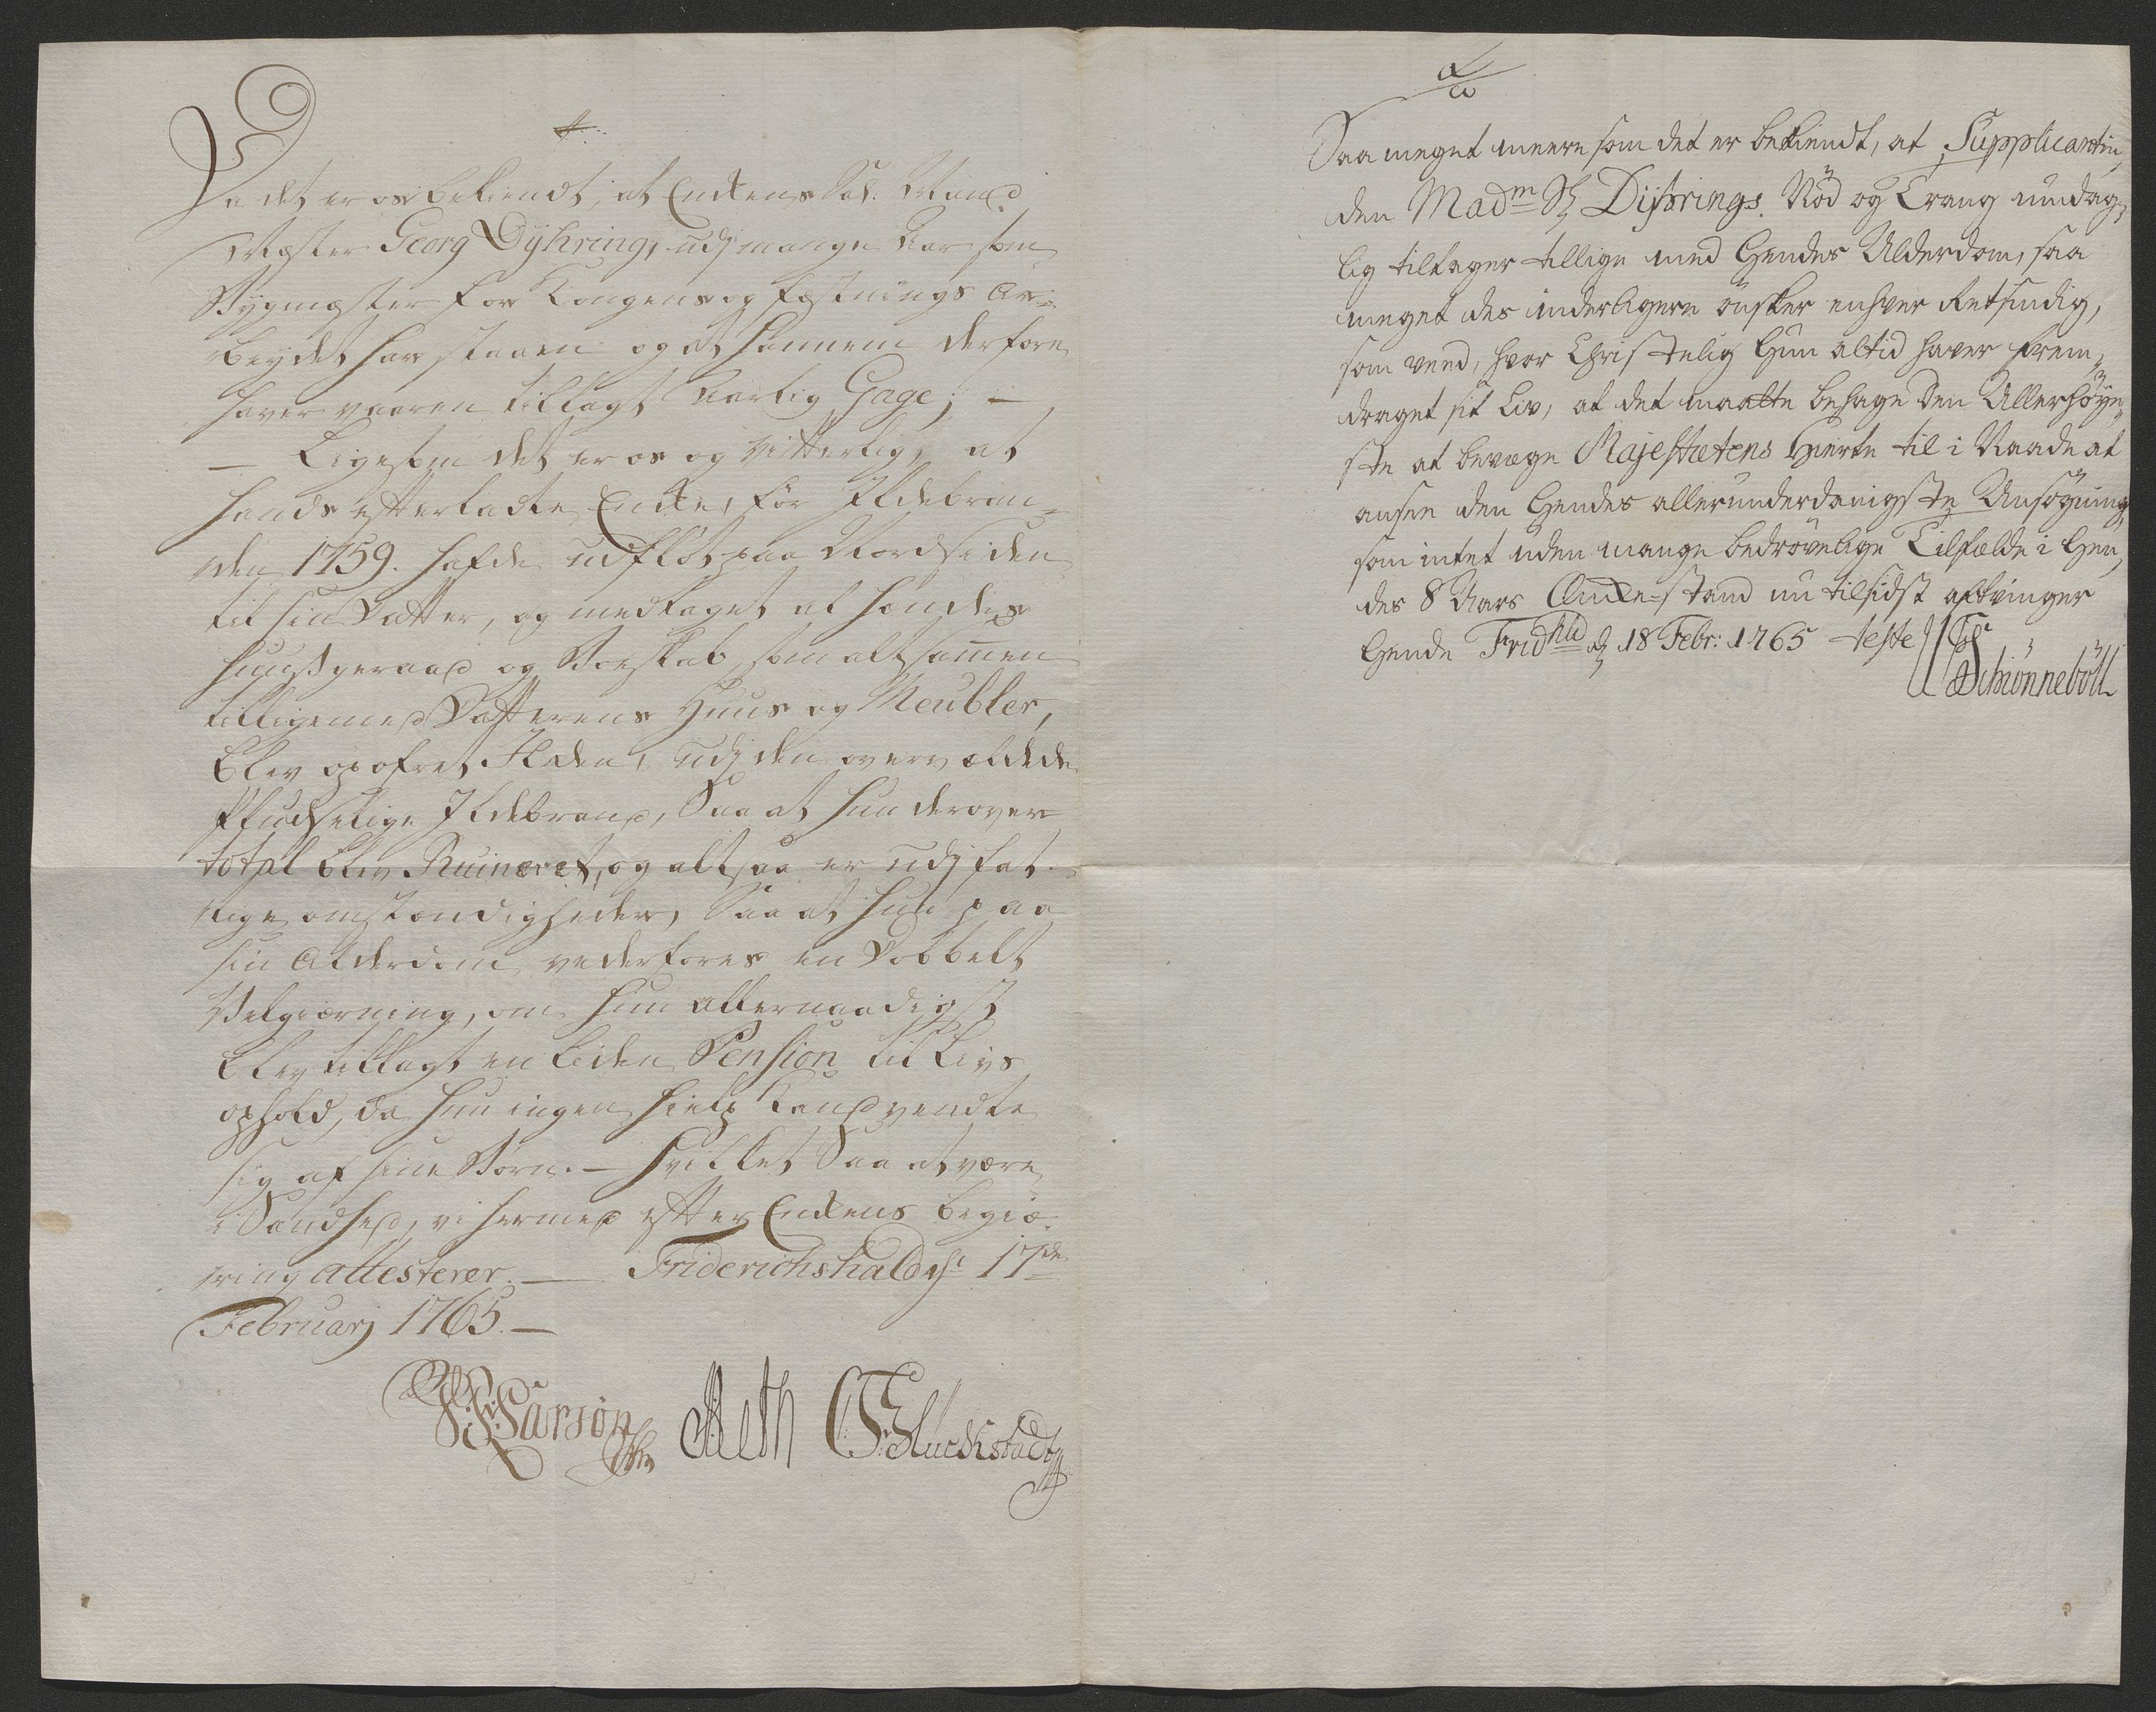 Da det er os bekiendt, at Enkens Sal. Mand
Mester Georg Dÿhring, udj mange Aar som
Bygmester for Kongens og fæstnings Ar¬
beydet har staaen og at hannem derfore
haver vaaren tillagt Aarlig Gage; —
— Ligesom det er os og vitterlig, at
hands efterladte Enke, før Ildebran¬
den 1759. hafde udfløt paa Nordsiden
til sin Datter, og medtaget al hendes
huusgeraad og Boeskab, som altsammen
tilligemed Datterens Huus og Meubler,
blev opofret Ilden, udj den overvældede
Pludselige Ildebrand, Saa at hun derover
total blev Ruineret, og altsaa er udj fat¬
tige omstændigheder, Saa at hun paa
sin Alderdom vederfores en Dobbelt
Velgiærning, om hun allernaadigst
blev tillagt en liden Pension til Livs
ophold, da hun ingen hielp kand vendte
sig af sine Børn. — hvilket Saa at være
i Sandhed, vi hermed efter Enkens begiæ¬
ring attesterer. — Friderichshald d: 17de
Februarj 1765. —
Carsøn Aeth CF Gluckstadt
Saa meget meere som det er bekiendt, at Supplicantin¬
den Madm Sl Dijhrings. Nöd og Trang undag¬
lig tiltager tillige med Hendes Alderdom, saa
meget des inderligere önsker enhver Retsindig,
som veed, hvor Christelig Hun altid haver frem¬
draget sit Liv, at det maatte behage Den Allerhöye¬
ste at bevæge Majestætens Hierte til i Naade at
ansee den Hendes allerunderdanigste Ansögning,
som intet uden mange bedrövelige Tilfælde i Hen¬
des 8 Aars Enkestand nu tilsidst aftvinger
Hende Fridhld d 18 Febr: 1765 teste
Schiönneböll